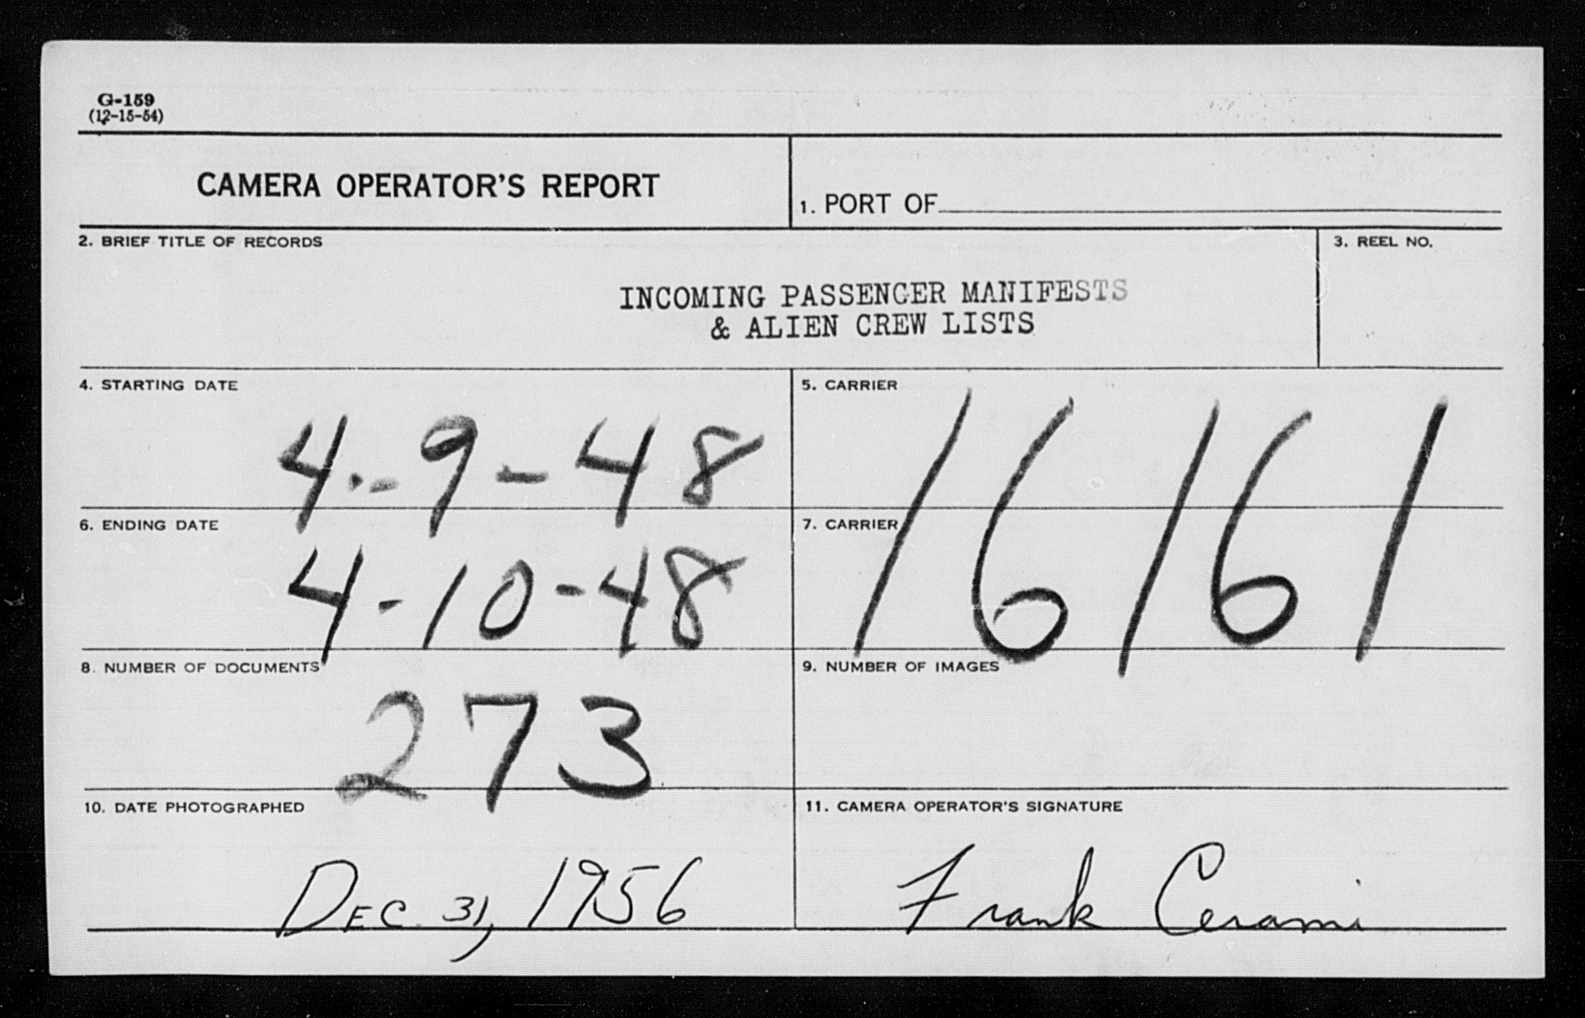 G-159
(12-15-54)
CAMERA OPERATOR'S REPORT
1. PORT OF
2. BRIEF TITLE OF RECORDS
3. REEL NO.
INCOMING PASSENGER MANIFESTS
& ALIEN CREW LISTS
4. STARTING DATE
4-9-48
5. CARRIER
16161
6. ENDING DATE
4-10-48
7. CARRIER
8. NUMBER OF DOCUMENTS
273
9. NUMBER OF IMAGES
10. DATE PHOTOGRAPHED
DEC. 31, 1956
11. CAMERA OPERATOR'S SIGNATURE
Frank Cerami